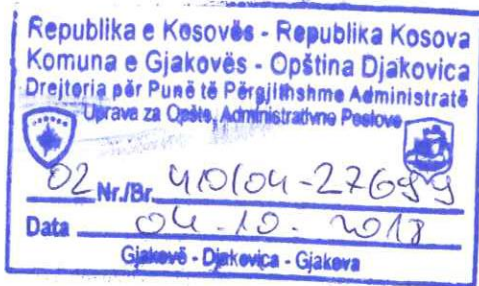 Republika e Kosovës - Republika Kosova
Komuna e Gjakovës - Opština Djakovica
Drejtoria për Punë të Përgjithshme Administratë
Uprava za Opšte, Administrativne Poslove
02 Nr./Br. 40/04-27699
Data 04-10-2018
Gjakovë - Djakovica - Gjakova